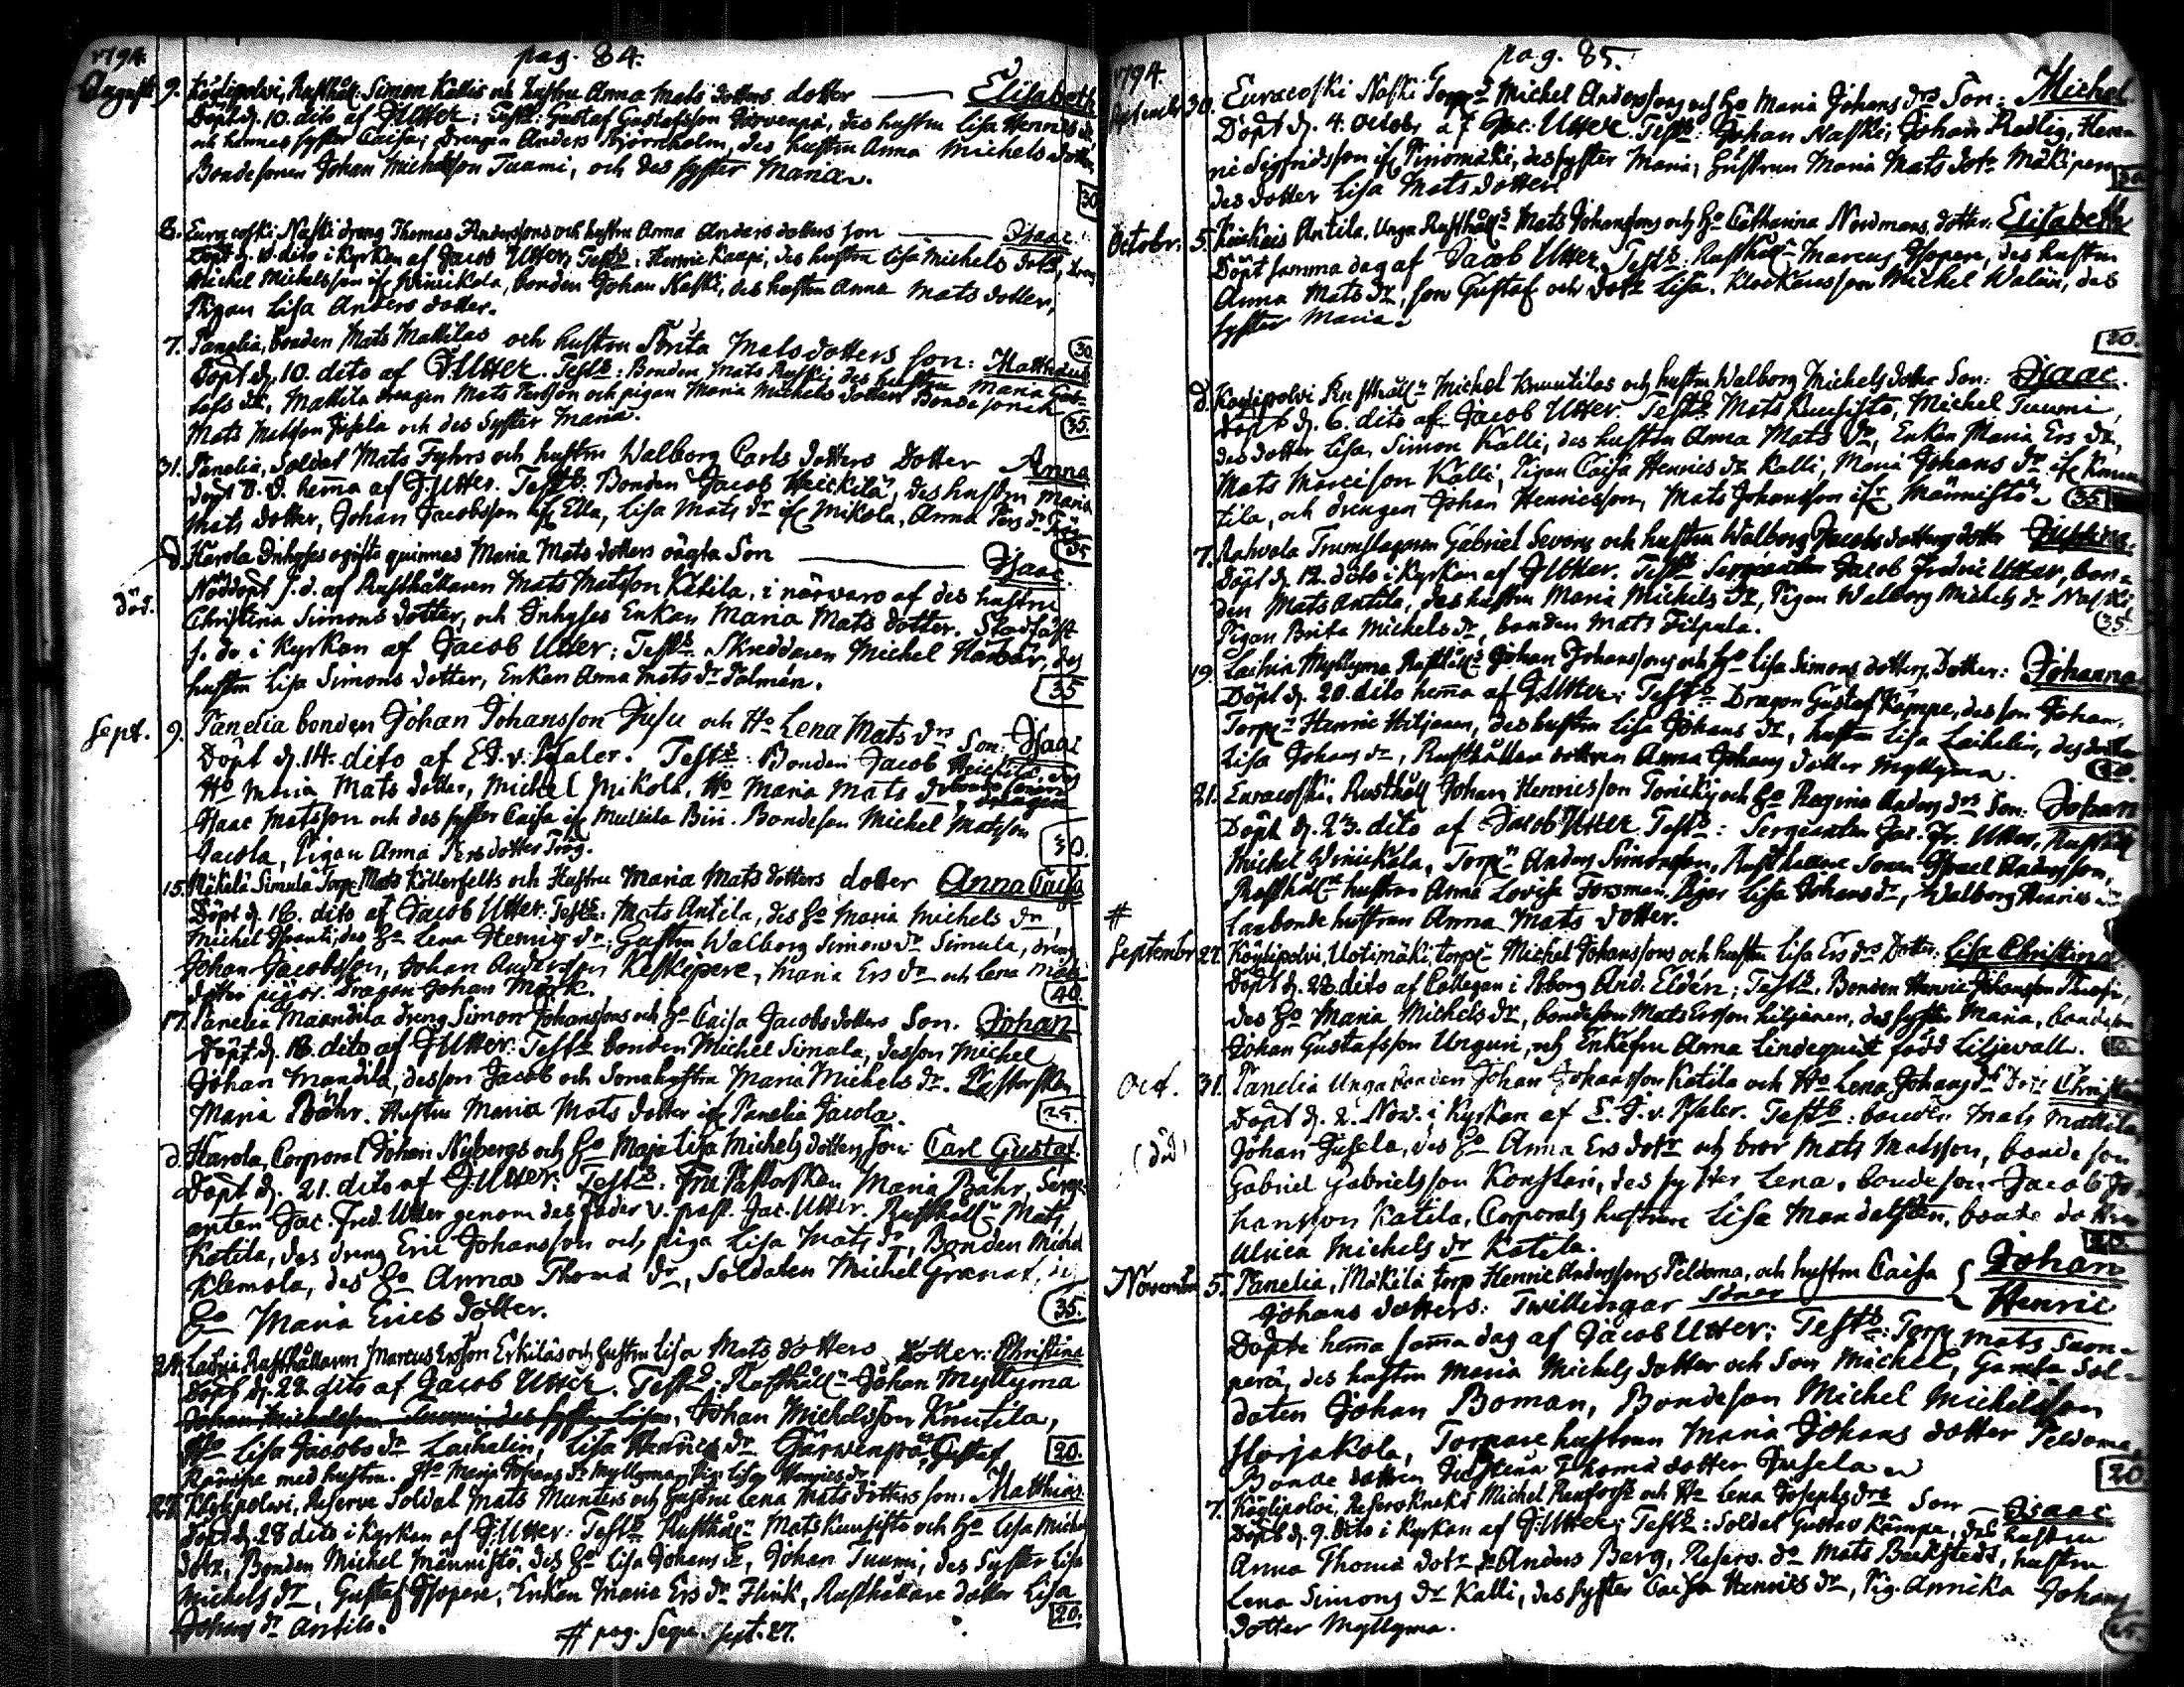 1794.
pag. 84.
Augusti 9. Köylipolvi, Rusthåll: Simon Kallis och hustru Anna Mats dotters dotter Elisabeth
Döpt d. 10. dito af J: Utter; Test: Gustaf Gustafsson Järvenpä, des hustru Lisa Henrics
och hennes syster Caisa; drengen Anders Björnholm, des hustru Anna Michels dotter
Bondesonen Johan Michelsson Tuomi, och des syster Maria.
30
8. Euracoski Naski dreng Thomas Anderssons och hustru Anna Anders dotters son Isaac.
Döpt d. 10. dito i Kyrkan af Jacob Utter, Test: Henric Kaapi, des hustru Lisa Michels dotr, dreng
Michel Michelsson ifr Winickala, bonden Johan Naski, des hustru Anna Mats dotter,
Pigan Lisa Anders dotter.
30
7. Panelia, bonden Mats Mattilas och hustru Brita Matsdotters son: Matthæus
Döpt d. 10. dito af J. Utter. Test: Bonden Mats Ruski des hustru Maria Gus-
tafs dr, Mattila drengen Mats Persson och pigan Maria Michels dotter Bondesonen
Mats Matsson Jusela och des Syster Maria.
35.
31. Panelia, Soldat Mats Fyhrs och hustru Walborg Carls dotters dotter Anna
döpt d. d. hema af J. Utter. Test: Bonden Jacob Heickilä, des hustru Maria
Mats dotter, Johan Jacobsson ifr Ella, Lisa Mats dr ifr Mikola, Anna Pers dr
35
d. Harola Inhyses ogifta quinnas Maria Mats dotters oägta Son Isaac.
död. Nöddöpt s. d. af Rusthållaren Mats Matsson Katila, i närwaro af des hustru
Christina Simons dotter, och Inhyses Enkan Maria Mats dotter. Stadfäst
s. d. i Kyrkan af Jacob Utter; Test: Skreddaren Michel, des
hustru Lisa Simons dotter, Enkan Anna Mats dr Palmén.
35
Sept. 9. Panelia bonden Johan Johansson Jusu och Ho Lena Mats drs Son: Isaac
Döpt d. 14. dito af E. J. v. Pfaler. Test: Bonden Jacob Heickilä, des
Ho Maria Mats dotter, Michel Mikola, Ho Maria Mats dr, drengen
Isaac Matsson och des syster Caisa ifr Mullila Biri. Bondeson Michel Matsson
Jacola, Pigan Anna Persdotter Trög.
30.
15. Mäkelä Simula Torp: Mats Köllerfelts och Hustru Maria Mats dotters dotter Anna Caisa
Döpt d. 16. dito af Jacob Utter: Test: Mats Antila, des Ho Maria Michels dr
Michel Isoanti, des Ho Lena Henrics dr; Hustru Walborg Simons dr Simula, dreng
Johan Jacobsson, Johan Andersson Keskipere, Maria Ers dr och Lena Mats
dotter pigor. Dragon Johan Mörk.
40.
17. Panelia Maandila dreng Simon Johanssons och Ho Caisa Jacobs dotters Son. Johan
Döpt d. 18. dito af J Utter: Test bonden Michel Simula, desson Michel
Johan Mandila, desson Jacob och Sonahustru Maria Michels dr. Pastorskan
Maria Bähr. Hustru Maria Mats dotter ifr Panelia Jacola.
25.
d. Harola, Corporal Johan Nybergs och Ho Maja Lisa Michels dotters son: Carl Gustaf.
Döpt d. 21. dito af J: Utter: Test: Fru Pastorskan Maria Bähr, Serge-
anten Jac. Fred. Utter genom des fader V. past. Jac. Utter. Rusthåll: Mats
Katila, des dreng Eric Johansson och piga Lisa Mats dr, Bonden Michel
Klemola, des Ho Anna Thomæ dr, Soldaten Michel Granat, des
Ho Maria Erics dotter.
35.
24. Rusthållaren Marcus Ersson Erkiläs och hustru Lisa Mats dotters dotter: Christina
Döpt d. 28. dito af Jacob Utter. Test: Rusthåll: Johan Myllyma
Johan Michelsson Tuomi, des syster Lisa, Johan Michelsson Knutila,
Ho Lisa Jacobs dr Laihelin, Lisa Henrics dr Järwenpä, Gustaf
20.
Kämpe med hustru. Ho Maria Johans dr Myllyma, Pig. Lisa Henrics dr
27. Köylipolvi, Reserve Soldat Mats Munters och hustru Lena Mats dotters son: Matthias.
Döpt d. 28 dito i Kyrkan af J: Utter: Test Rusthåll: Mats Kuusisto och Ho Lisa Michels
dotr, Bonden Michel Männistö, des Ho Lisa Johans dr, Johan Tuumi, des Syster Lisa
Michels dr, Gustaf Isopere, Enkan Maria Ers dr Flink, Rusthållare dotter Lisa
20.
Johans dr Antila.
# pag. sequ. Sept. 27.
1794.
pag. 85.
September 30. Euracoski Naski Torpr Michel Anderssons och Ho Maria Johans drs Son: Michel
Döpt d. 4. Octobr af Jac: Utter. Test: Johan Naski; Johan Redlig, Hen-
ric Sigfridsson ifr Pinomäki, des syster Maria; hustrun Maria Mats dotr Mäkipere
des dotter Lisa Mats dotter.
Octobr: 5. Antila, Unga Rusthåll Mats Johanssons och Ho Catharina Nordmans dotter: Elisabeth
Döpt samma dag af Jacob Utter. Test: Rusthåll Marcus Isopere, des hustru
Anna Mats dr, son Gustaf och dotr Lisa. Klockarsson Michel Walän, des
syster Maria.
20.
d. Köylipolvi Rusthåll Michel Knuutilas och hustru Walborg Michels dotter Son: Isaac.
Döpt d. 6. dito af Jacob Utter. Test: Mats Kuusisto, Michel Tuumi,
des dotter Lisa, Simon Kalli, des hustru Anna Mats dr, Enkan Maria Ers dr,
Mats Marcisson Kalli, Pigan Caisa Henrics dr Kalli, Maria Johans dr ifr Knuu-
tila, och drengen Johan Henricsson, Mats Johansson ifr Männistö.
35
7. Rahvola Trumslagaren Gabriel Sevons och hustru Walborg Jacobs dotters dotter Justina.
Döpt d. 12. dito i Kyrkan af J Utter. Test Sergeanten Jacob Fredric Utter, bon-
den Mats Antila, des hustru Maria Michels dr, Pigan Walborg Michels dr Naski,
Pigan Brita Michels dr, bonden Mats Filpula.
35.
19. Laihia Myllyma Rusthåll: Johan Johanssons och Ho Lisa Simons dotters Dotter: Johanna
Döpt d. 20. dito hema af J. Utter; Test: Dragon Gustaf Kämpe, des son Johan,
Torpr Henric Hiljanen, des hustru Lisa Johans dr, hustru Lisa Laihelin, des dotter
Lisa Johans dr, Rusthållare dottren Anna Johans dotter Myllyma.
21. Euracoski, Rusthåll Johan Henricsson Torickis och Ho Regina Anders drs Son: Johan
Döpt d. 23. dito af Jacob Utter. Test: Sergeanten Jac. Fr. Utter, Rusthåll
Michel Winickala, Torpr Anders Simonsson, Rusthållare Sonen Israel Andersson,
Rusthåll hustrun Anna Lovisa Forsman, Pigor Lisa Johans dr, Walborg Henrics dr
Lanbonde hustrun Anna Mats dotter.
#
September 27. Köylipolvi, Uotimäki, torpr Michel Johanssons och hustru Lisa Ers drs Dotter: Lisa Christina
Döpt d. 28. dito af Collegan i Åborg And. Eldén; Test. Bonden Henric Johansson
des Ho Maria Michels dr, bondeson Mats Ersson Liljanen, des syster Maria, bondeson
Johan Gustafsson Unguri, och Enkefru Anna Lindequist född Liljewall.
Oct. 31. Panelia Unga bonden Johan Johansson Katila och Ho Lena Johans drs Dotr Christina
Döpt d. 2. Nov. i Kyrkan af E. J. v. Pfaler. Test: bonden Mats Mattila
(död) Johan Jusela, des Ho Anna Ers dotr och bror Mats Matsson, bonde son
Gabriel Gabrielsson Konstari, des syster Lena, bondeson Jacob Jo-
hansson Katila, Corporals hustrun Lisa Mandalsten, bonde dottren
Ulrica Michels dr Katila.
November 5. Panelia, Mäkilä torp Henric Anderssons Peldoma, och hustru Caisa { Johan
Johans dotters: Twillingar söner Henric
Döpte hema sama dag af Jacob Utter; Test: Torpr Mats Suon-
perä, des hustru Maria Michels dotter och Son Michel, Gamla Sol-
daten Johan Boman, Bondeson Michel Michelsson
Horjakola, Torpare hustrun Maria Johans dotter Peldoma
Bonde dottren Justina Thomæ dotter Jusela
20
7. Köylipolvi, Reserv Knekt Michel Renfors och Ho Lena Josephs drs Son Isaac
Döpt d. 9. dito i Kyrkan af J: Utter; Test: Soldat Gustav Kämpe, des hustru
Anna Thomæ dotr, Anders Berg, Reserv. do Mats Bäckstedt, hustru
Lena Simons dr Kalli, des syster Caisa Henrics dr, Pig. Annika Johans
dotter Myllyma.